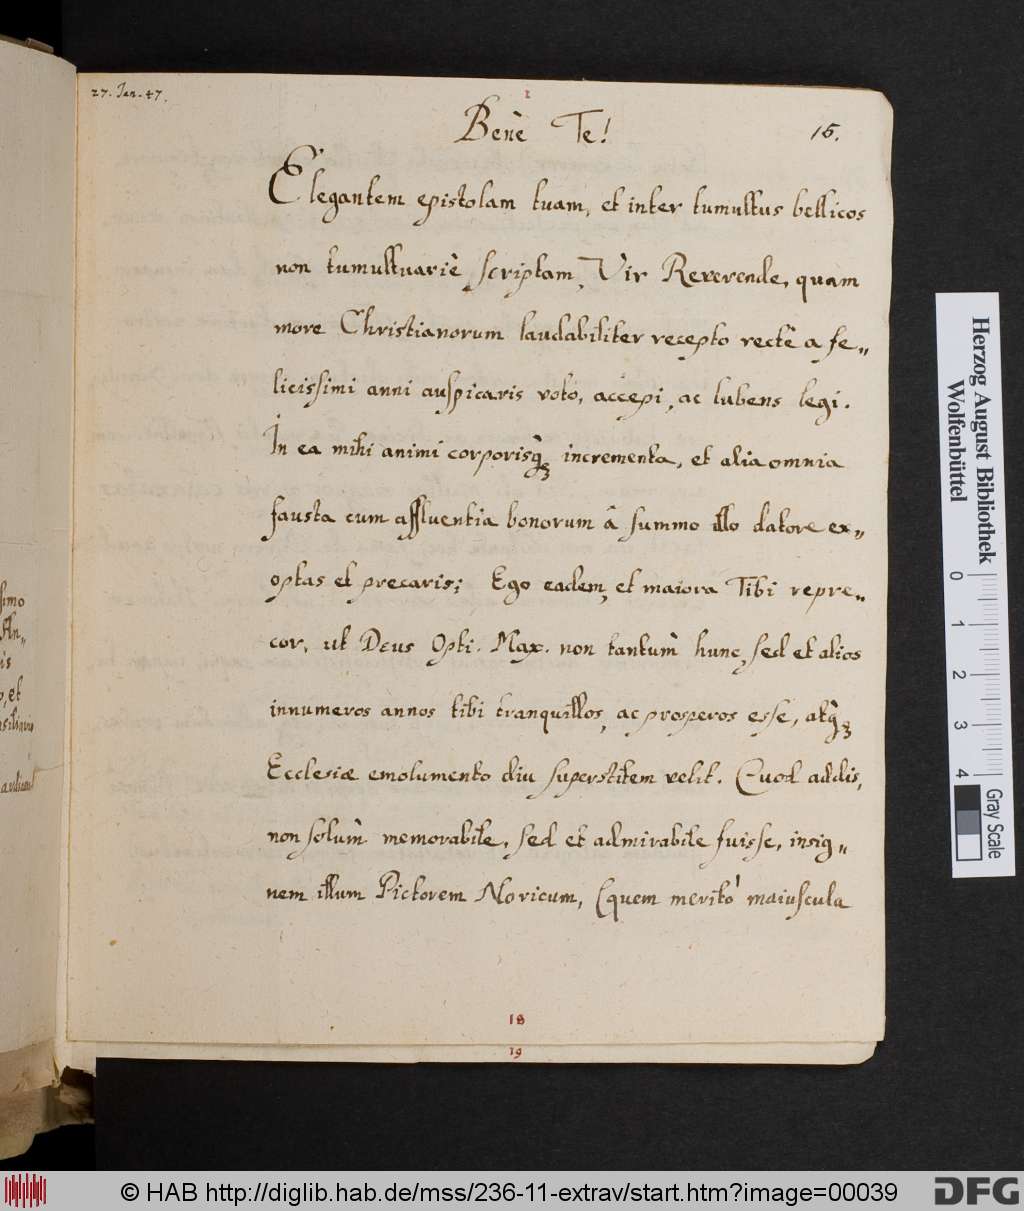 27. Jan. 47.
1
Benè Te!
15.
Elegantem epistolam tuam, et inter tumultus bellicos
non tumultuariè scriptam, Vir Reverende, quam
more Christianorum laudabiliter recepto rectè a fe„
licissimi anni auspicaris voto, accepi, ac lubens legi.
In ea mihi animi corporisq̀ꝫ incrementa, et alia omnia
fausta cum affluentia bonorum â summo illo datore ex„
optas et precaris; Ego eadem, et maiora Tibi repre„
cor, ut Deus Opti. Max. non tantùm hunc, sed et alios
innumeros annos tibi tranquillos, ac prosperos esse, atq̀ꝫ
Ecclesiæ emolumento diu superstitem velit. Quod addis,
non solùm memorabile, sed et admirabile fuisse, insig„
nem illum Pictorem Noricum, (quem meritò maiuscula
18
19
simo
An„
is
o, et
Herzog August Bibliothek
Wolfenbüttel
0 1 2 3 4
Gray Scale
© HAB http://diglib.hab.de/mss/236-11-extrav/start.htm?image=00039
DFG